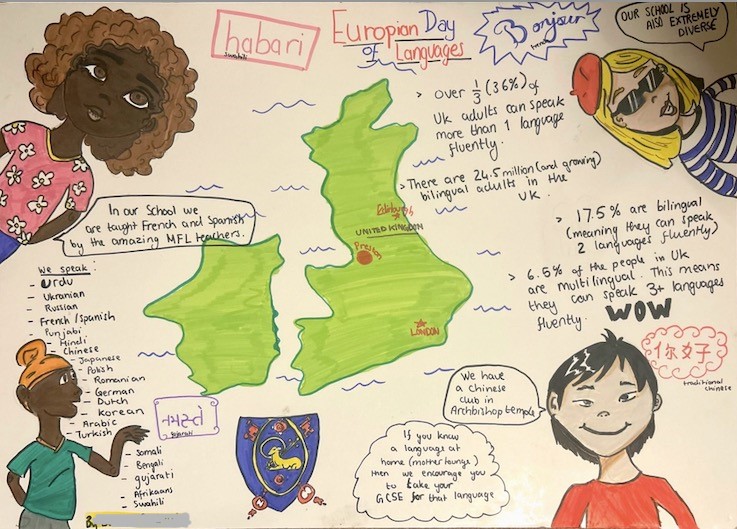 habari
swahili
Europian Day
of Languages
Bonjour
french
OUR SCHOOL IS
ALSO EXTREMELY
DIVERSE
> Over 1/3 (36%) of
Uk adults can speak
more than 1 language
fluently.
> There are 24.5 million (and growing)
bilingual adults in the
UK.
> 17.5% are bilingual
(meaning they can speak
2 languages fluently)
> 6.5% of the people in Uk
are multilingual. This means
they can speak 3+ languages
fluently. WOW
Edinburgh
UNITED KINGDOM
Preston
LONDON
In our School we
are taught French and Spanish
by the amazing MFL teachers.
We speak:
- Urdu
- Ukranian
- Russian
- French/Spanish
- Punjabi
- Hindi
- Chinese
- Japanese
- Polish
- Romanian
- German
- Dutch
- Korean
- Arabic
- Turkish
- Somali
- Bengali
- gujarati
- Afrikaans
- Swahili
નમસ્તે
Gujarati
We have
a chinese
club in
Archbishop temple
你好
traditional
chinese
If you know
a language at
home (mother tounge)
then we encourage you
to take your
GCSE for that language
By